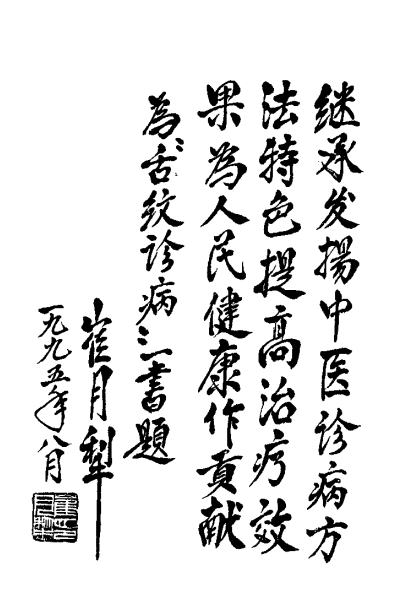 继承发揚中医诊病方
法特色提高治疗效
果為人民健康作貢献
為《舌纹诊病》一書題
崔月犁
一九九五年八月